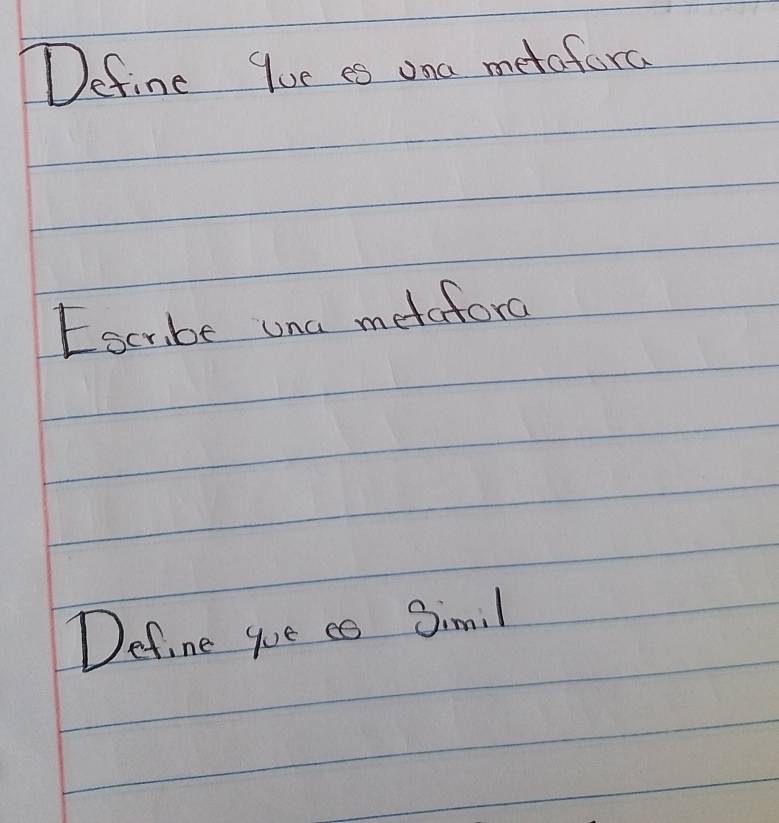 Define que es una metafora
Escribe una metafora
Define que es Simil